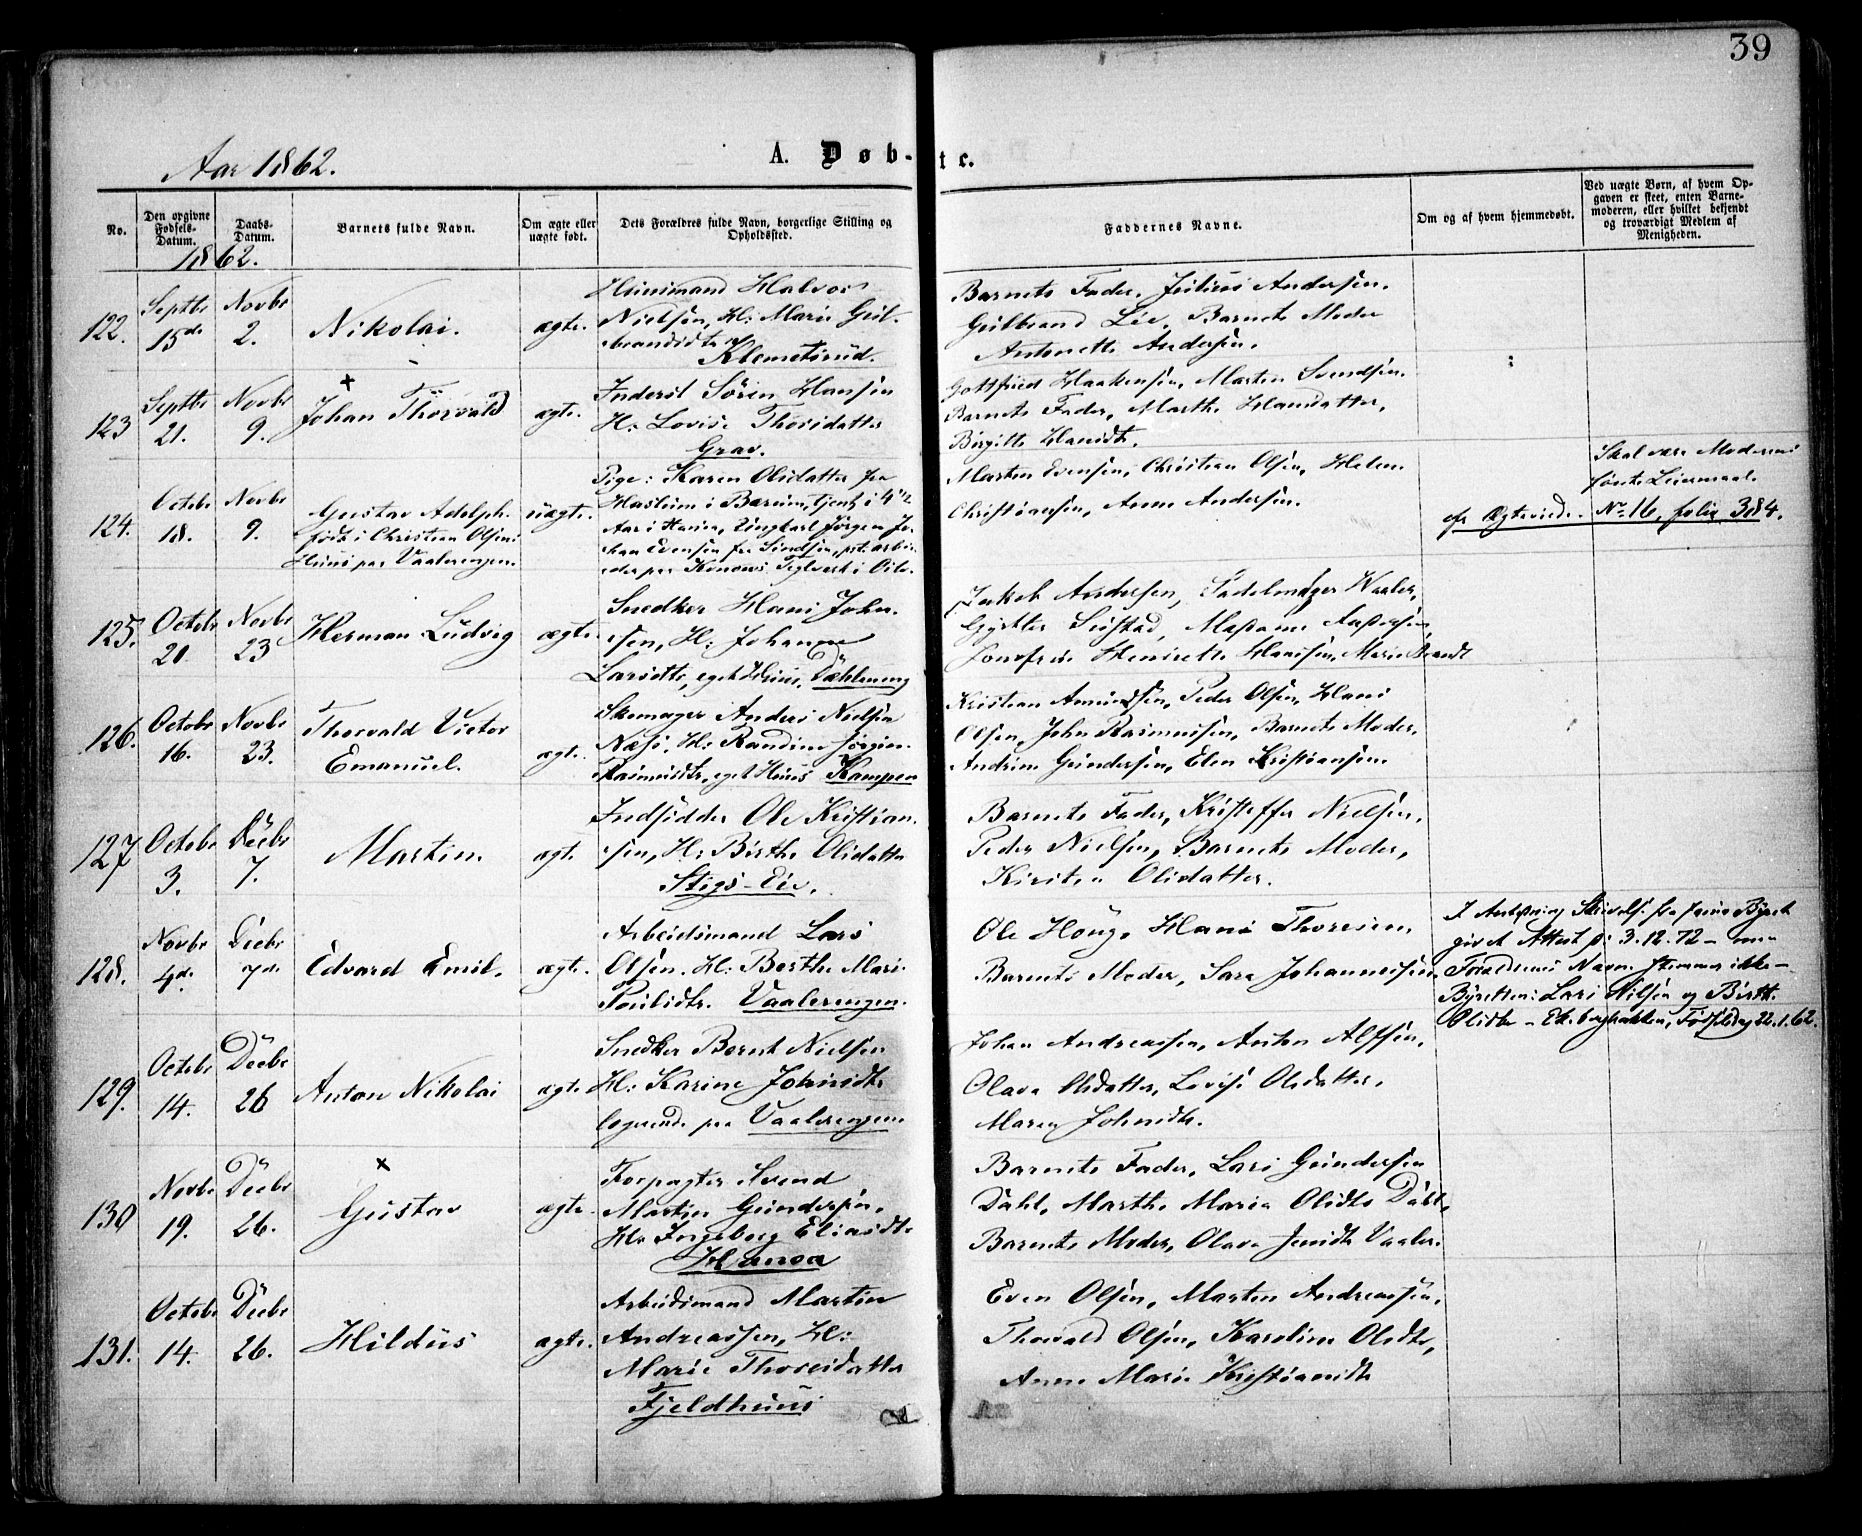 39
Aar 1862.
A. Døb-
te.
No.
Den opgivne Fødsels-Datum.
Daabs-Datum.
Barnets fulde Navn.
Om ægte eller uægte født.
Dets Forældres fulde Navn, borgerlige Stilling og Opholdssted.
Faddernes Navne.
Om og af hvem hjemmedøbt.
Ved uægte Børn, af hvem Op-
gaven er skeet, enten Barne-
moderen, eller hvilket bekjendt
og troværdigt Medlem af
Menigheden.
1862.
122.
Septbr 15de
Novbr 2.
Nikolai.
ægte.
Huusmand Halvor
Nielsen, H: Marie Gul-
brandsdtr
Klemetsrud.
Barnets Fader, Julius Andersen.
Gulbrand Lie, Barnets Moder
Antonette Andersen.
123
Septbr 21.
Novbr 9.
×
Johan Thorvald
ægte.
Inderst Sören Hansen
H: Lovise Thorsdatter
Grav.
Gottfried Haakensen, Marten Svendsen.
Barnets Fader, Marthe Hansdatter,
Birgitte Hansdtr.
124.
Octobr 18.
Novbr 9.
Gustav Adolph.
født i Christian Olsens
Huus paa Vaalerengen.
uægte.
Pige: Karen Olsdatter fra
Haslum i Bærum, tjent i 4 1/2
Aar i Hans, Ungkarl Jørgen Jo-
han Evensen fra Lindsen, pt. arbei-
der paa Konows Teglverk i Oslo.
Marten Evensen, Christian Olsen, Helene
Christiansen, Anne Andersen.
cfr Ægteviede.
Skal være Moderens
første Leiermaal.
No 16, folio 384.
125.
Octobr 20.
Novbr 23
Herman Ludvig
ægte.
Snedker Hans John-
sen, H: Johanne
Larsdtr, eget Huus, Dæhleneng
Jakob Andersen, Sadelmager Waaler,
Gjørtler Sustad, Madame Aasersen,
Jomfru Henriette Hansen, Marie Brandt
126.
Octobr 16.
Novbr 23.
Thorvald Victor
Emanuel.
ægte.
Skomager Anders Nielsen
Næss, H: Randine Jörgine
Rasmusdtr, eget Huus Kampen
Kristian Amundsen, Peder Olsen, Hans
Olsen, John Rasmussen, Barnets Moder,
Andrine Gundersen, Elen Kristiansen.
127
Octobr 3.
Decbr 7.
Martin.
ægte
Indsidder Ole Kristian-
sen, H: Birthe Olsdatter
Stigs-Eie.
Barnets Fader, Kristoffer Nielsen,
Peder Nielsen, Barnets Moder,
Kirsten Olsdatter.
128.
Novbr 4de.
Decbr 7de
Edvard Emil.
ægte.
Arbeidsmand Lars
Olsen. H: Berthe Marie
Poulsdtr. Vaalerengen.
Ole Houg, Hans Thoresen,
Barnets Moder, Sara Johannessen.
I Anledning Skrivelse fra Byret
givet Attest pr 3.12.72 – men
Forældrenes Navn stemmer ikke –
Byretten: Lars Nilsen og Birthe
Olsdtr – Ekebergbakken, Fødselsdag 22.1.62.
129.
Octobr 14.
Decbr 26
Anton Nikolai
ægte
Snedker Bernt Nielsen
H: Karine Johnsdtr
logerende paa Vaalerengen.
Johan Andreassen, Anton Alfsen,
Olava Olsdatter, Lovise Olsdatter.
Maren Johnsdtr.
130
Novbr 19.
Decbr 26.
×
Gustav
ægte.
Forpagter Svend
Martin Gundersen,
H: Ingeborg Eliasdtr
Manoa
Barnets Fader, Lars Gundersen
Dahl, Marthe Maria Olsdtr Dahl,
Barnets Moder, Olava Jensdtr Vaaler.
131.
Octobr 14.
Decbr 26.
Hildus
ægte.
Arbeidsmand Martin
Andreassen, H:
Marie Thoresdatter
Fjeldhuus
Even Olsen, Marten Andreassen,
Thorvald Olsen, Karoline Olsdtr,
Anne Marie Kristiansdtr